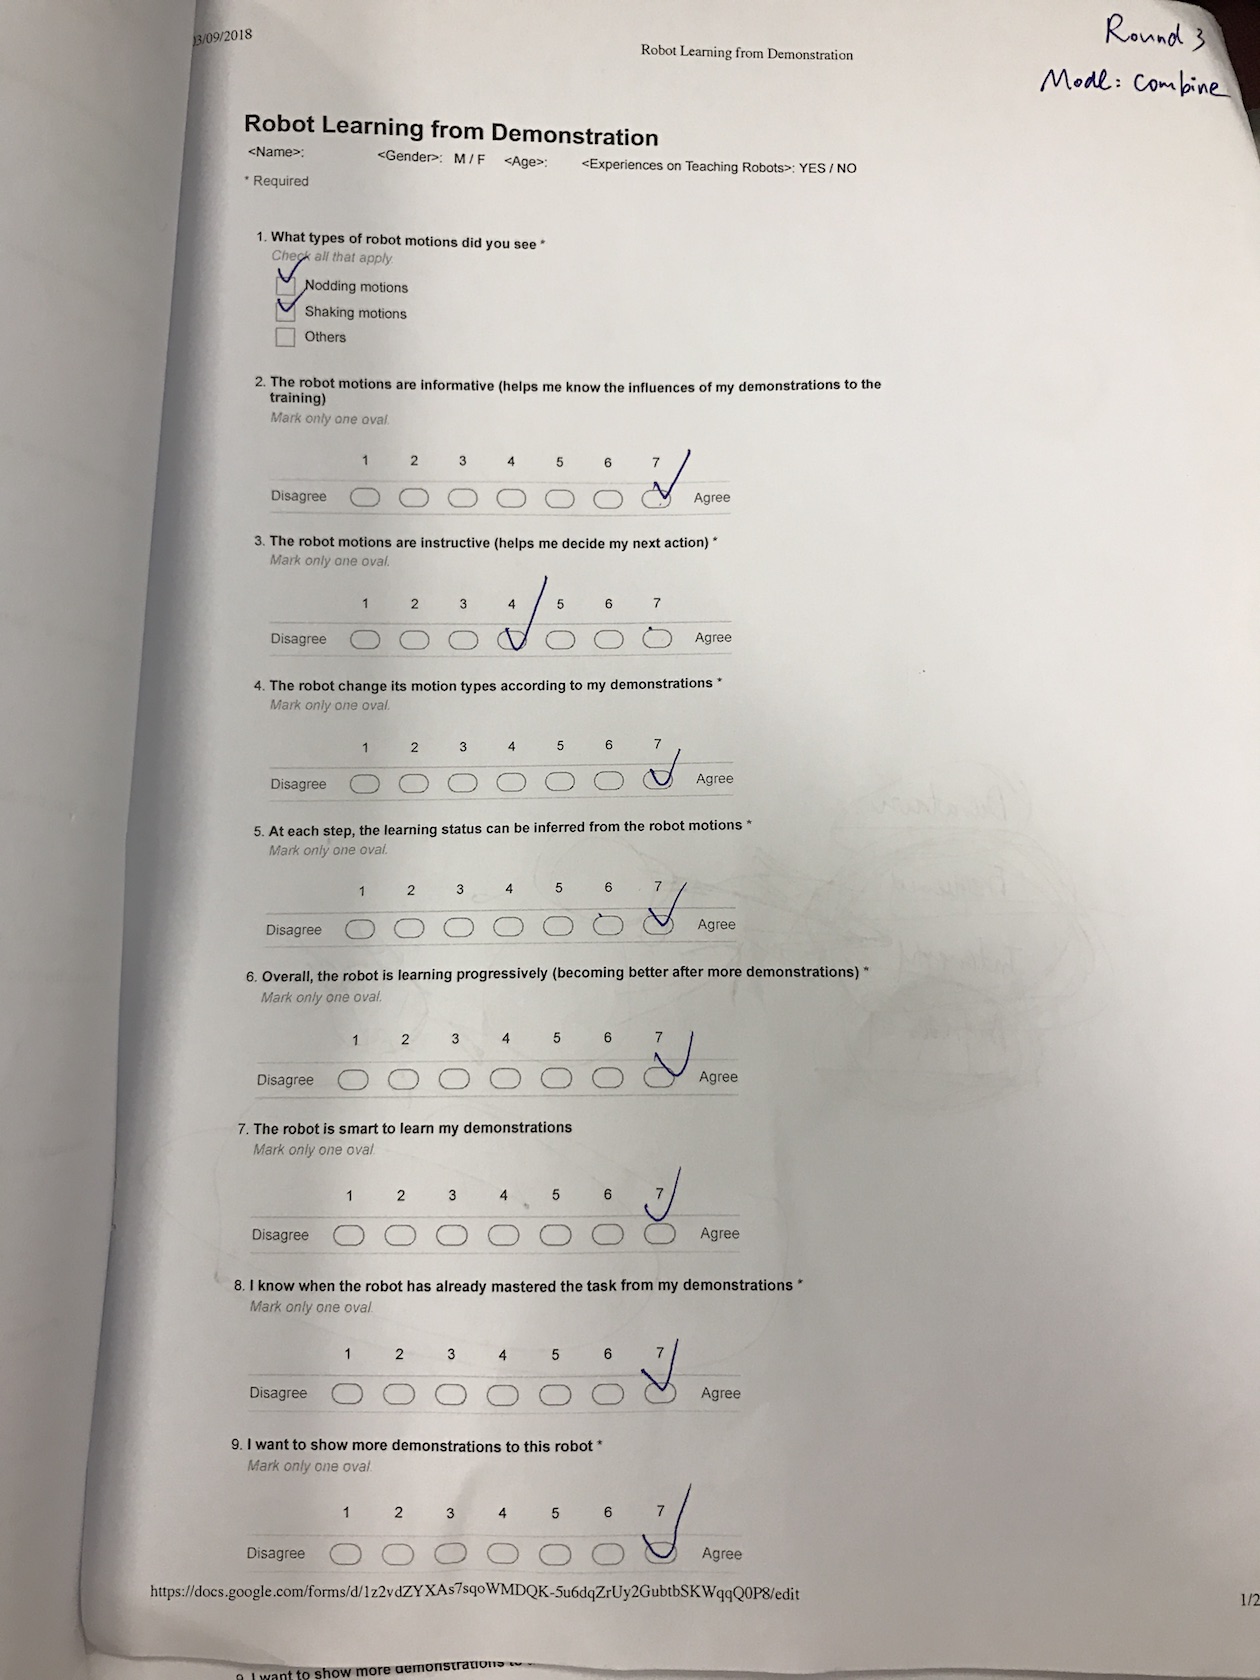 03/09/2018
Robot Learning from Demonstration
Round 3
Mode: Combine
Robot Learning from Demonstration
<Name>: <Gender>: M / F <Age>: <Experiences on Teaching Robots>: YES / NO
* Required
1. What types of robot motions did you see *
Check all that apply
Nodding motions
Shaking motions
Others
2. The robot motions are informative (helps me know the influences of my demonstrations to the
training)
Mark only one oval.
1 2 3 4 5 6 7
Disagree Agree
3. The robot motions are instructive (helps me decide my next action) *
Mark only one oval.
1 2 3 4 5 6 7
Disagree Agree
4. The robot change its motion types according to my demonstrations *
Mark only one oval.
1 2 3 4 5 6 7
Disagree Agree
5. At each step, the learning status can be inferred from the robot motions *
Mark only one oval.
1 2 3 4 5 6 7
Disagree Agree
6. Overall, the robot is learning progressively (becoming better after more demonstrations) *
Mark only one oval.
1 2 3 4 5 6 7
Disagree Agree
7. The robot is smart to learn my demonstrations
Mark only one oval.
1 2 3 4 5 6 7
Disagree Agree
8. I know when the robot has already mastered the task from my demonstrations *
Mark only one oval.
1 2 3 4 5 6 7
Disagree Agree
9. I want to show more demonstrations to this robot *
Mark only one oval.
1 2 3 4 5 6 7
Disagree Agree
https://docs.google.com/forms/d/1z2vdZYXAs7sqoWMDQK-5u6dqZrUy2GubtbSKWqqQ0P8/edit
1/2
9. I want to show more demonstrations to